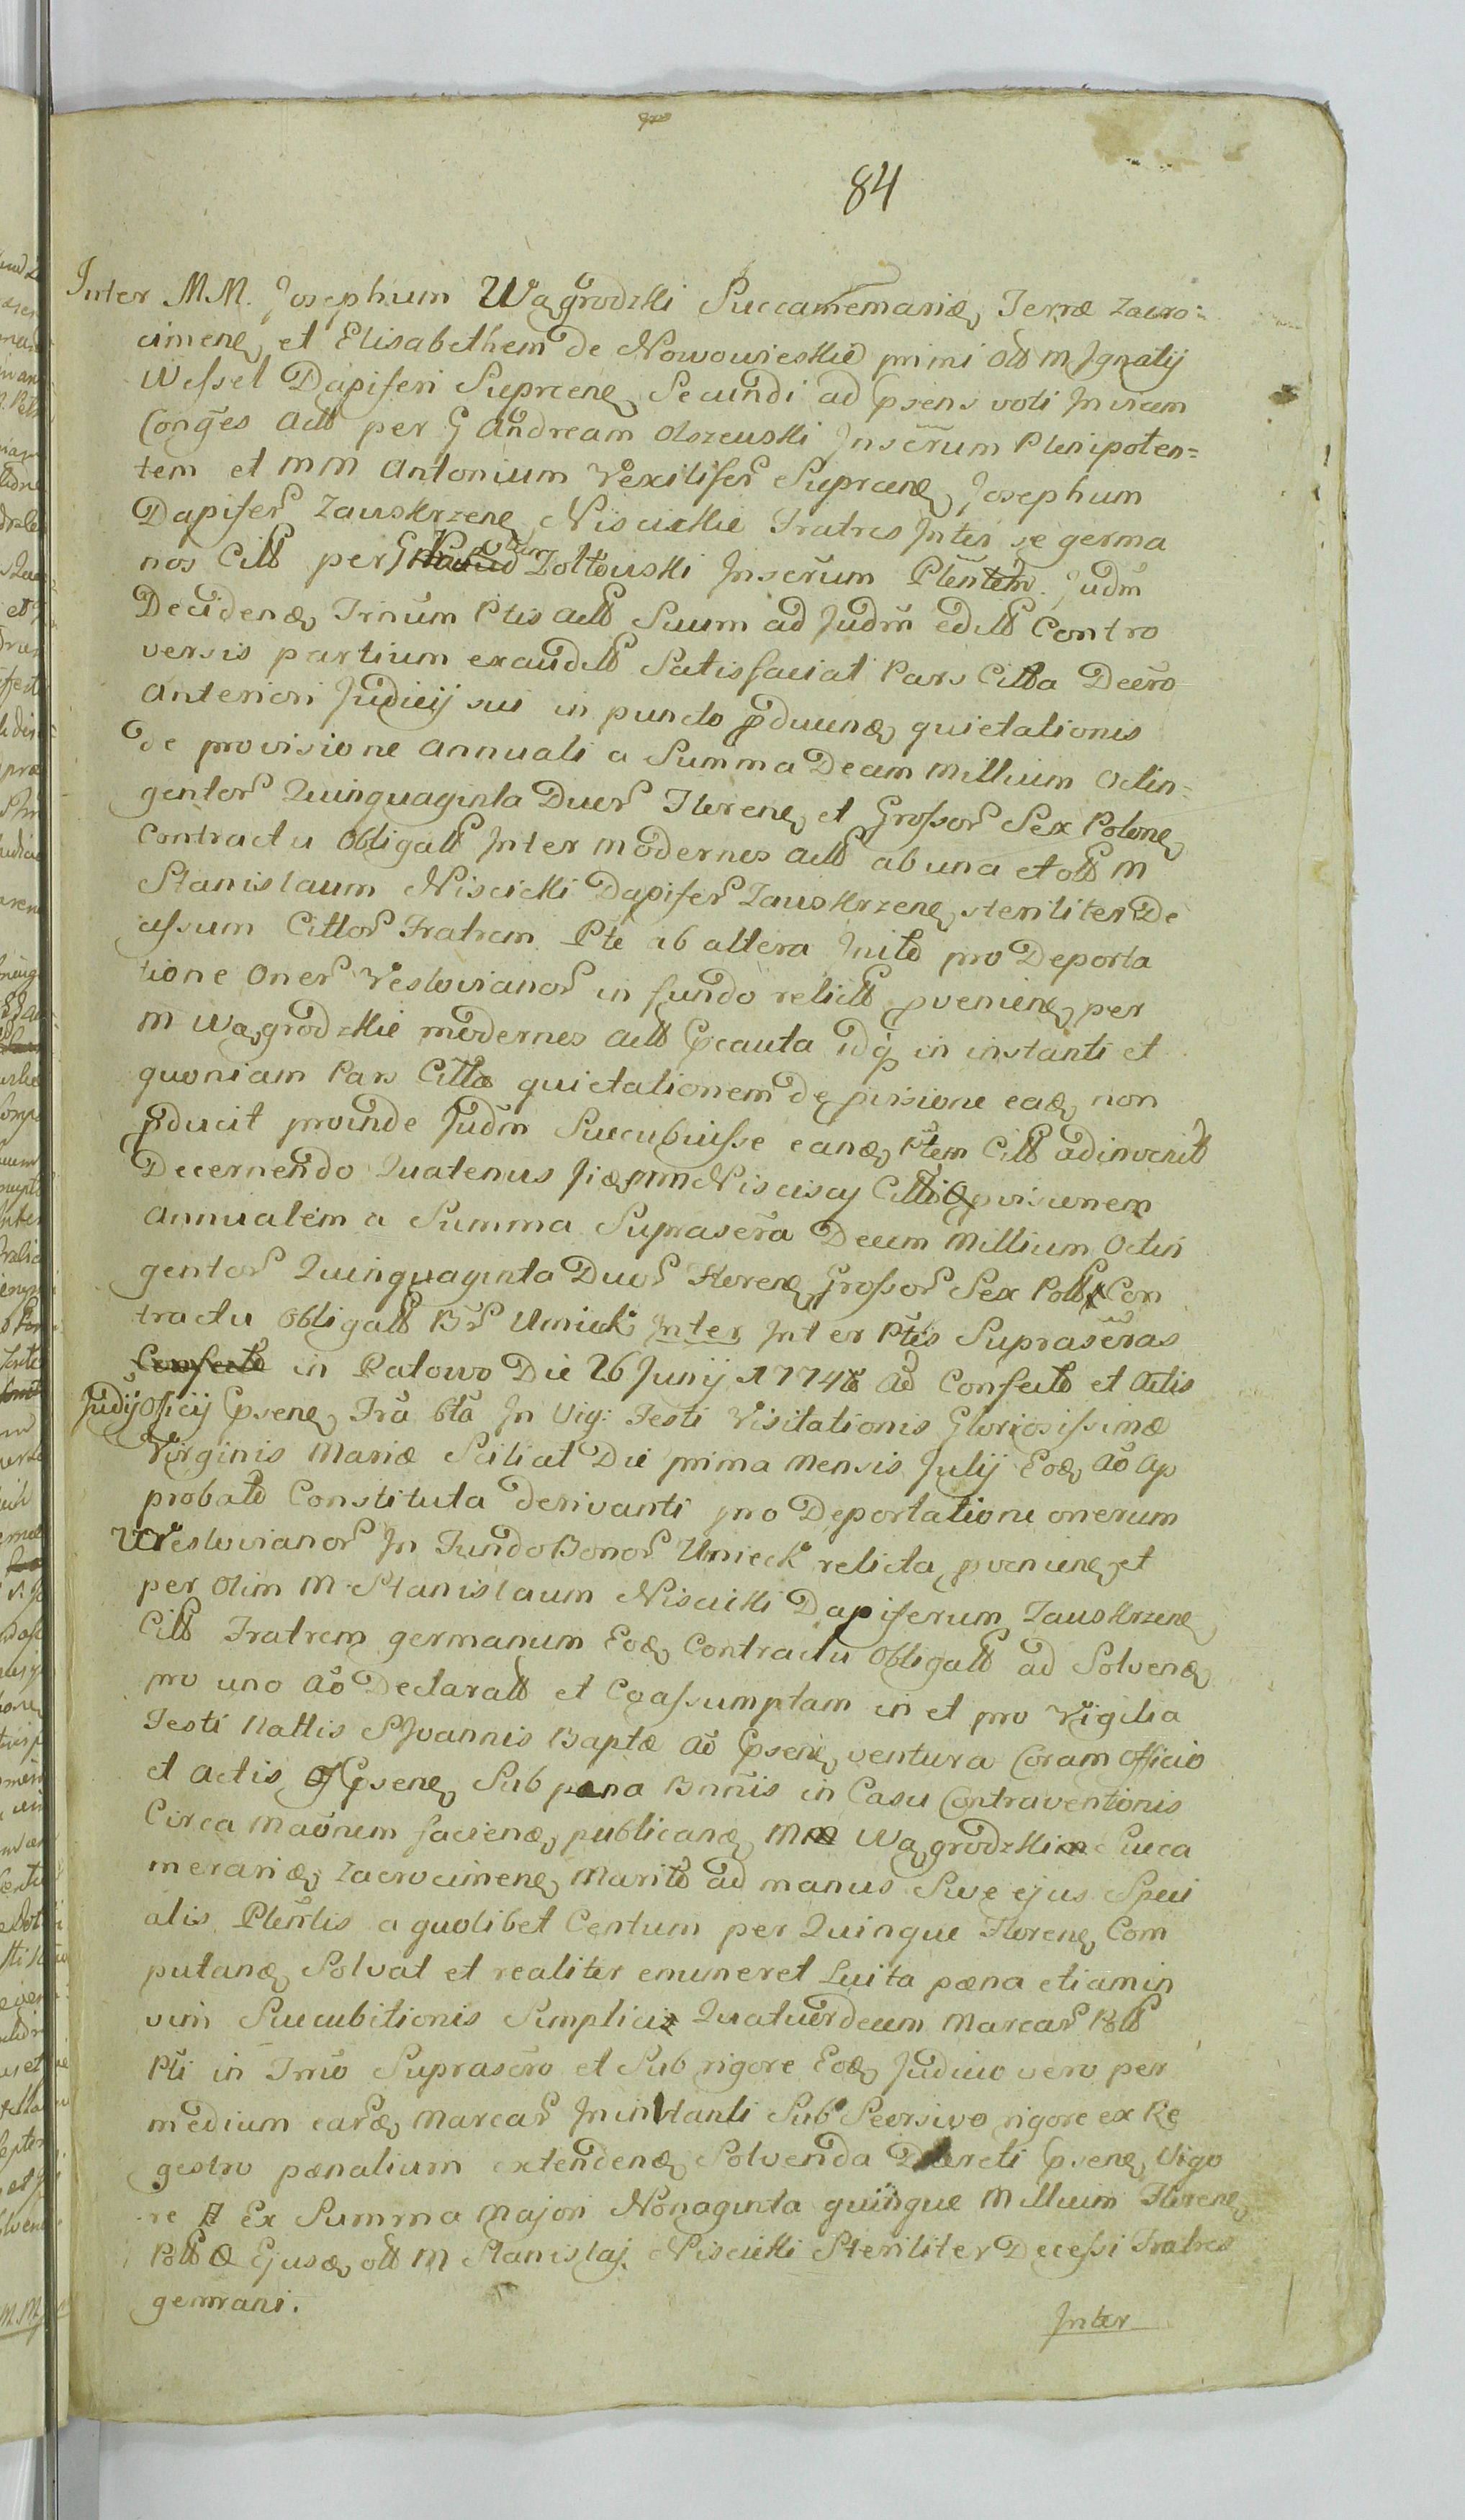 84
Inter MM. Josephum Wągrodzki Succamerariæ Terræ Zacro:
cimenę et Elisabethem de Nowowieskie primi olt M Ignatij
Wessel Dapiferi Suprcenę Secundi ad Cpsens voti Invicem
Conges Actt per G Andream Olszewski Inscrum Plenipoten=
tem et MM Antonium Vexilifer Suprcenę Josephum
Dapifer Zauskrzenę Niscickie Fratres Inter se germa
nos Citt per G Zołtowski Inscrum Plentem. Judm
Decidenæ Trnum Ptis Actt Suum ad Judm editt Contro
versis partium exauditt Satisfaciat Pars Citta Decro
Anteriori Judicij sui in puncto pducenæ quietationis
de provisione Annuali a Summa Decem Millium Octin=
gentor Quinquaginta Duor Florenę et Grossor Sex Polonę
Contractu Obligatt Inter Modernos Actt ab una et olt M
Stanislaum Niscicki Dapifer Zauskrzenę steriliter De
cessum Cittor Fratrem Pte ab altera Inito pro Deporta
tione Oner Vestwianor in fundo relictt pvenienę per
M Wągrodzkie modernos Actt Cpcauta idq in instanti et
quoniam Pars Citta quietationem de pvisione eadæ non
pducit proinde Judm Succubuisse eanæ Ptem Citt adinvenitt
Decernendo Quatenus MM Nisciscy Citti pvisionem
Annualem a Summa Suprascra Decem Millium Octin
gentor Quinquaginta Duor Florenę Grossor Sex Poltt Con
tractu Obligatt Br Umieck Inter Inter Ptes Suprascras
Confecto in Ratowo Die 26 Junij 1774 Ao Confecto et Actis
Judij Officij Cpsenę Fra bta In Vig: Festi Visitationis Gloriosissimæ
Virginis Mariæ Scilicet Die prima Mensis Julij Eoæ Ao Ap
probato Constituta derivanti pro Deportatione onerum
Vestwianor In Fundo Bonor Umieck relicta pvenienę et
per Olim M Stanislaum Niscicki Dapiferum Zauskrzenę
Citt Fratrem germanum Eoæ Contractu Obligatt ad Solvenæ
pro uno Ao Declaratt et Coassumptam in et pro Vigilia
Festi Nattis S Joannis Baptæ Ao Cpsenę ventura Coram Officio
et Actis Cpsenę Sub pæna Bnnis in Casu Contraventionis
Circa Maonem facienæ publicanæ M Wągrodzki Succa
merariæ Zacrocimenę Marito ad manus Sive ejus Speci
alis Plentis a quolibet Centum per Quinque Florenę Com
putanæ Solvat et realiter enumeret Luita pæna etiam in
vim Succubitionis Simplicis Quatuordecem Marcar Poltt
Pti in Trno Suprascro et Sub rigore Eoæ Judicio vero per
medium earæ Marcar In instanti Sub Seorsivo rigore ex Re
gestro pænalium extendenæ Solvenda Decreti Cpsenę Vigo
re Ex Summa Majori Nonaginta quinque Millium Florenę
Poltt Ejusæ olt M Stanislaj Niscicki Steriliter Decessi Fratres
germani.
Inter